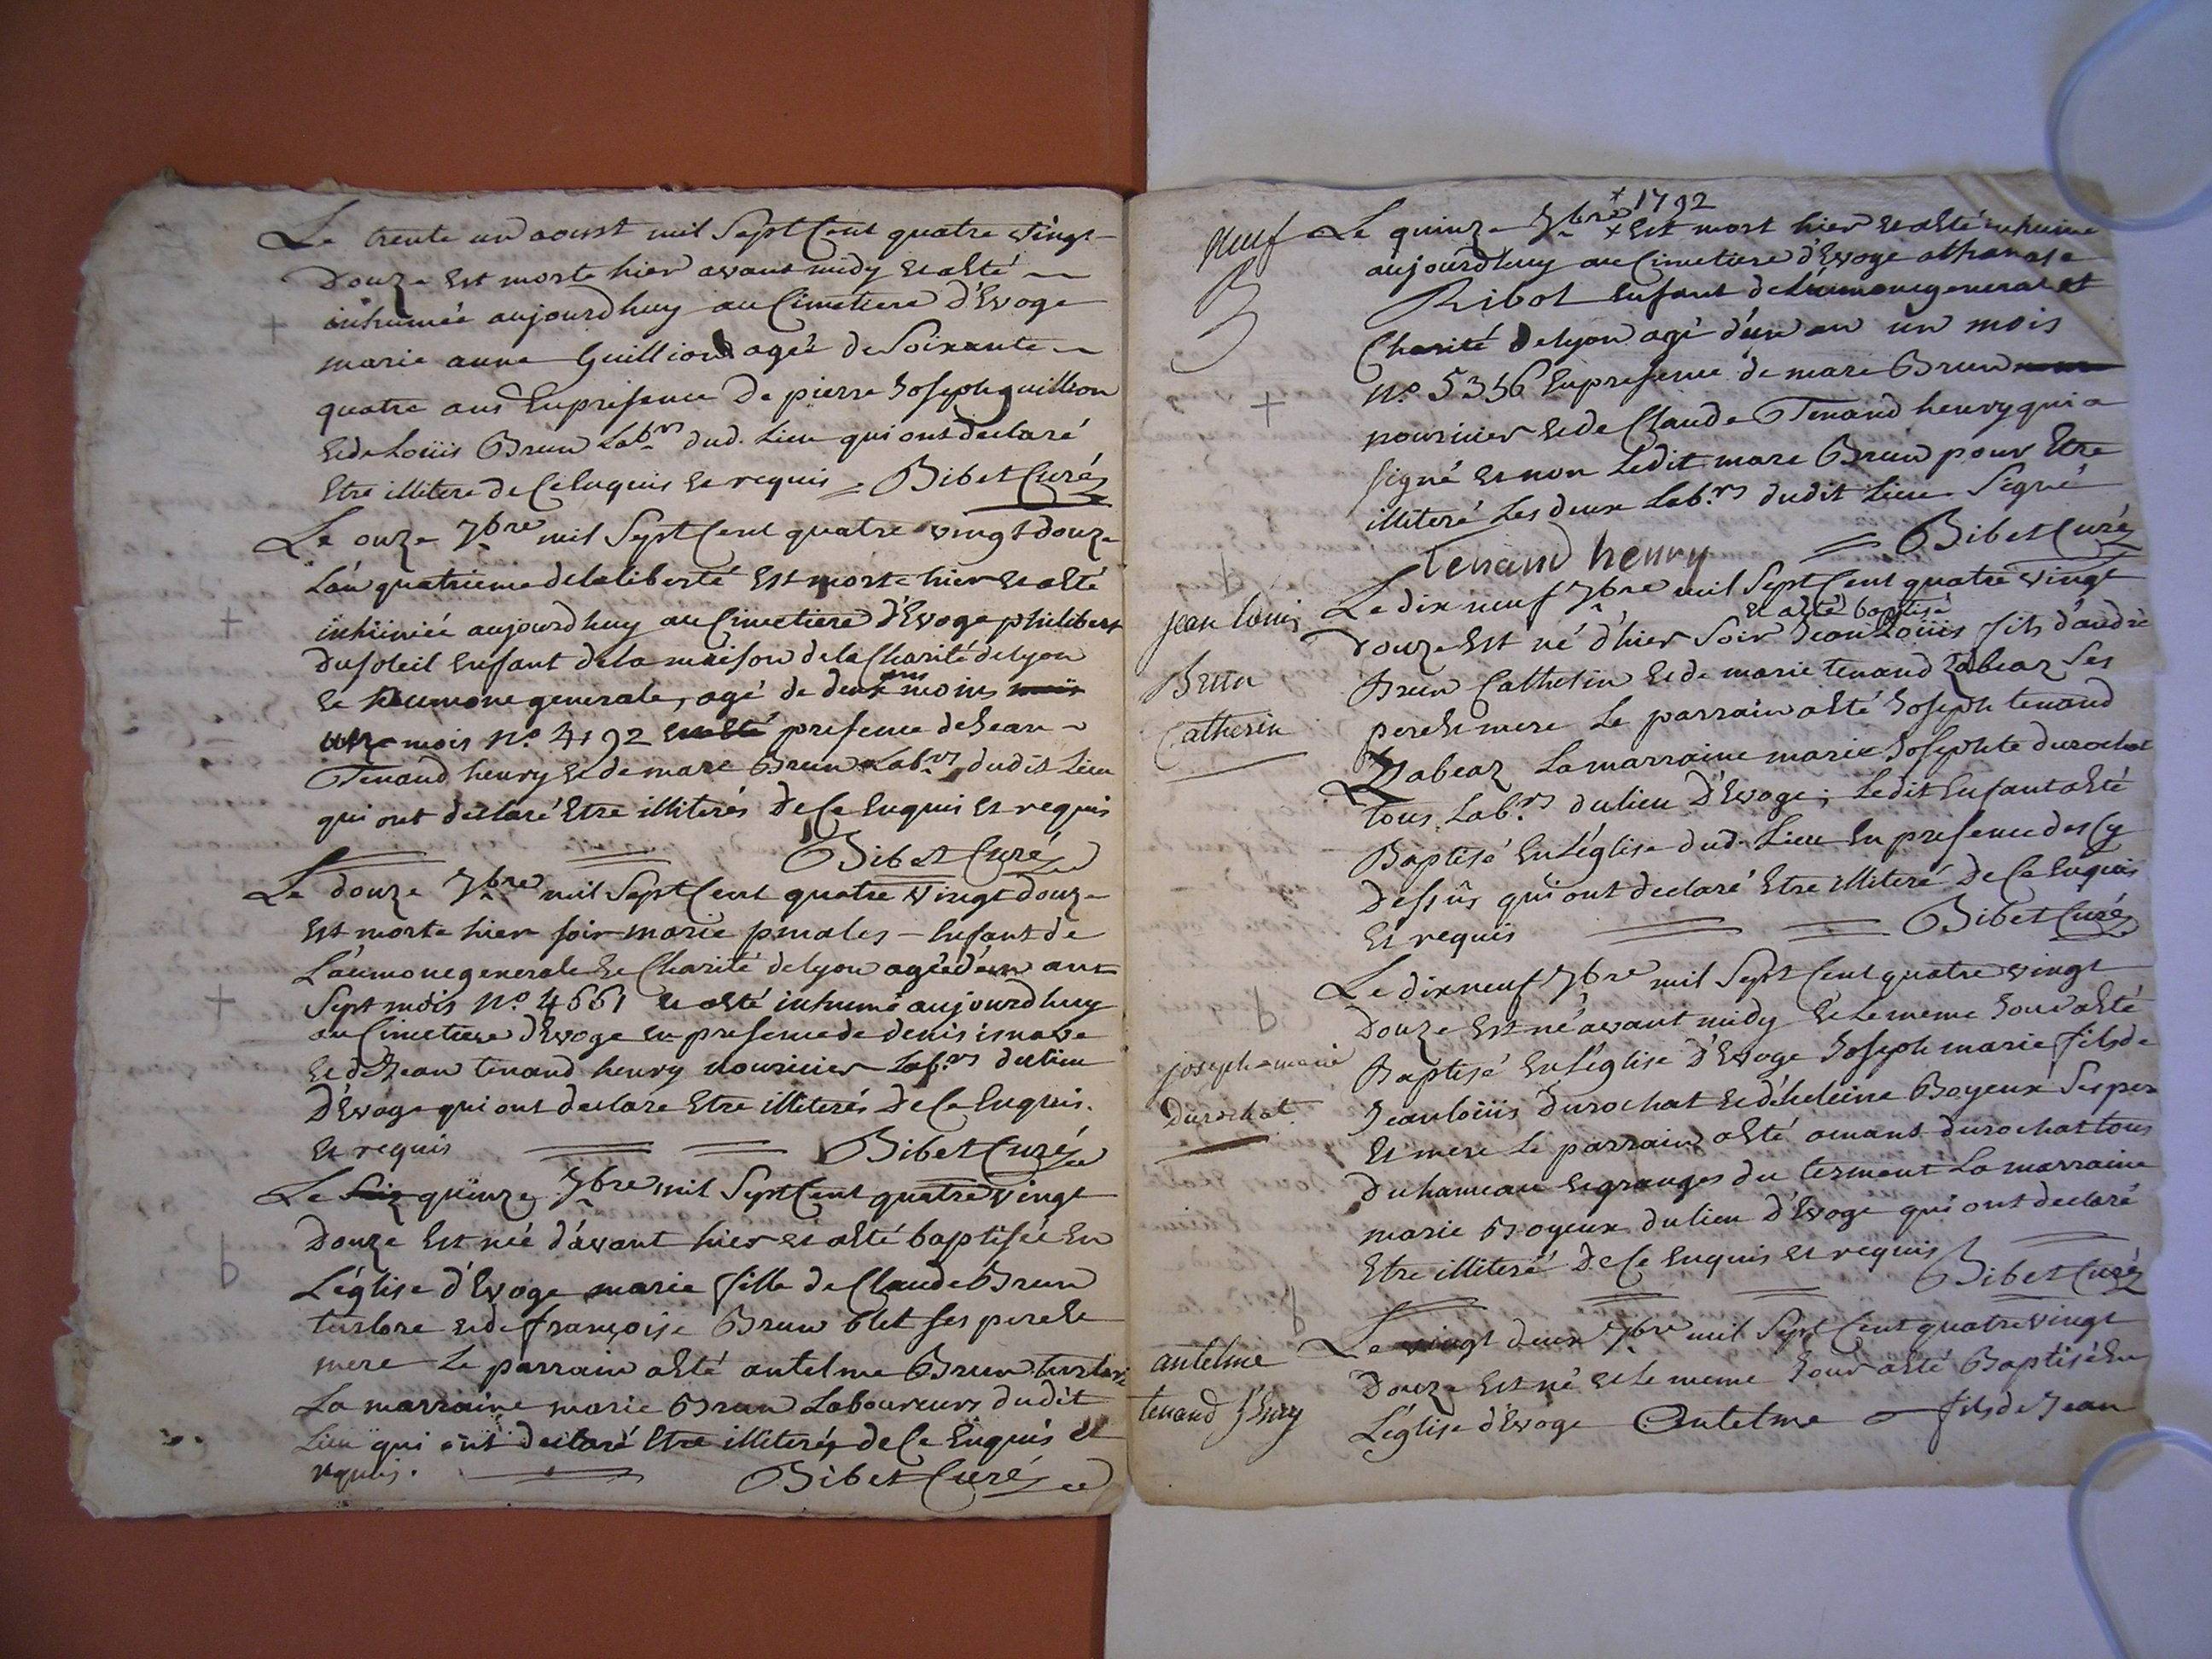 Le trente un aoust mil Sept Cent quatre vingt
Douze Est morte hier avant midy et a Eté
inhumée aujourdhuy au Cimetiere d'Evoge
marie anne Guillion agée de Soixante
quatre ans En presence De pierre Joseph guillion
et de Loüis Brun Lab.rs dud. Lieu qui ont declaré
Etre illitere de Ce Enquis et requis Bibet Curé
Le onze 7bre mil Sept Cent quatre vingt douze
L'an quatrieme de la liberté Est morte hier et a Eté
inhumée aujourdhuy au Cimetiere d'Evoge philibert
Dusoleil Enfant de la maison de la Charité de lyon
et aumone generale, agé de deux ans moins
un mois N.o 4192 presence de Jean
Tenand henry et de marc Brun Lab.rs dudit Lieu
qui ont declaré Etre illiterés De Ce Enquis et requis
Bibet Curé
Le douze 7bre mil Sept Cent quatre vingt douze
Est morte hier soir marie pmales Enfant de
L'aumone generale et Charité de lyon agée d'un ans
Sept mois N.o 4661 et a Eté inhumé aujourdhuy
au Cimetiere d'Evoge en presence de denis
et de Jean tenand henry nouricier Lab.rs du lieu
D'Evoge qui ont declare Etre illiterés De Ce Enquis.
et requis Bibet Curé
Le quinze 7bre mil Sept Cent quatre vingt
Douze Est née d'avant hier et a Eté baptisée En
L'église d'Evoge marie fille de Claude Brun
et de françoise Brun blet ses pere et
mere Le parrain a Eté antelme Brun
La marraine marie Brun Laboureurs dudit
Lieu qui ont declaré Etre illiterés de Ce Enquis et
requis. Bibet Curé
neuf
Le quinze 7bre 1792 Est mort hier et a Eté inhumé
aujourdhuy au Cimetiere d'Evoge athanase
Ribot Enfant de L'aumone generale et
Charité de lyon agé d'un an un mois
N.o 5356 En presence de marc Brun
nouricier et de Claude Tenand henry qui a
signé et non Ledit marc Brun pour Etre
illiteré Les deux Lab.rs dudit Lieu Signé
Tenand henry Bibet Curé
jean louis
Brun
Catherin
Le dix neuf 7bre mil Sept Cent quatre vingt
et a Eté baptisé
Douze Est né d'hier Soir Jean Loüis fils d'andré
Brun Catherin et de marie tenand Zabeaz Ses
pere et mere Le parrain a Eté Joseph tenand
Zabeaz La marraine marie Josephte durochat
tous Lab.rs du lieu D'Evoge; Ledit Enfant a Eté
Baptisé En L'église dud. Lieu En presence des Cy
Dessûs qui ont declaré Etre illiteré De Ce Enquis
Et requis Bibet Curé
joseph marie
Durochat
Le dix neuf 7bre mil Sept Cent quatre vingt
Douze Est né avant midy et le meme Jour a Eté
Baptisé En L'église D'Evoge Joseph marie fils de
Jean loüis Durochat et d'heleine Boyeux Ses pere
Et mere Le parrain a Eté amant durochat tous
Du hameau et granges du terment La marraine
marie Boyeux du lieu D'Evoge qui ont declaré
Etre illiteré De Ce Enquis et requis Bibet Curé
antelme
tenand henry
Le vingt deux 7bre mil Sept Cent quatre vingt
Douze Est né et le meme Jour a Eté Baptisé En
L'église d'Evoge Antelme fils de Jean